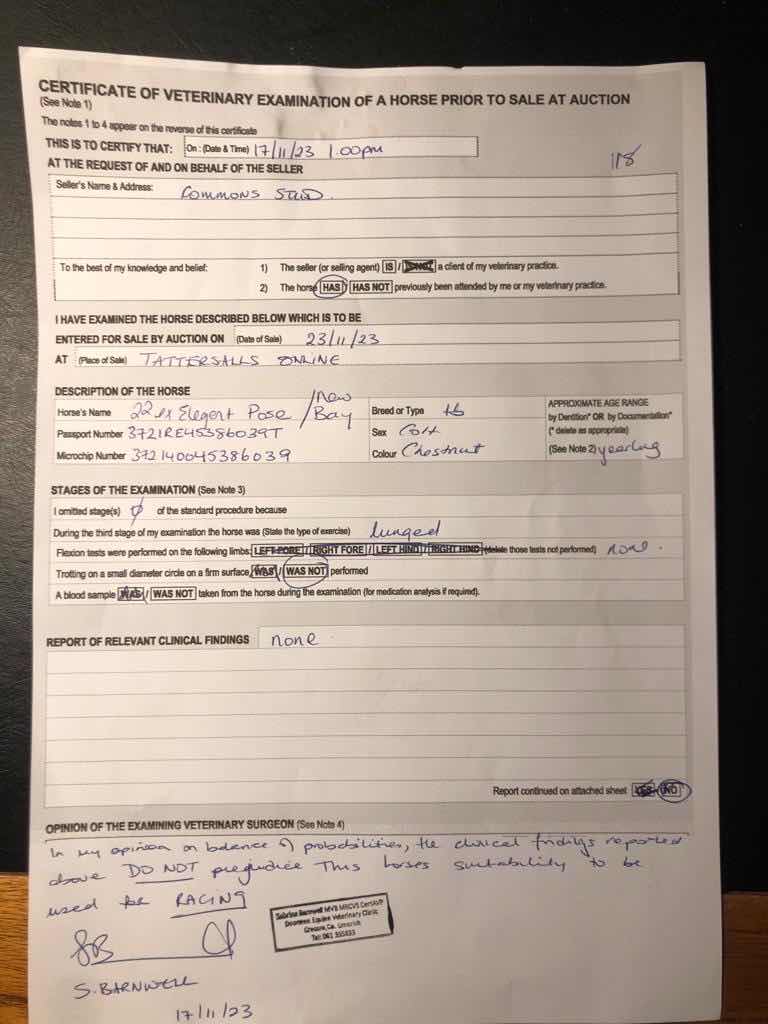 CERTIFICATE OF VETERINARY EXAMINATION OF A HORSE PRIOR TO SALE AT AUCTION
(See Note 1)
The notes 1 to 4 appear on the reverse of this certificate
THIS IS TO CERTIFY THAT: On : (Date & Time) 17/11/23 1.00pm
118
AT THE REQUEST OF AND ON BEHALF OF THE SELLER
Seller's Name & Address: Commons Stud.
To the best of my knowledge and belief: 1) The seller (or selling agent) IS / IS NOT a client of my veterinary practice.
2) The horse HAS / HAS NOT previously been attended by me or my veterinary practice.
I HAVE EXAMINED THE HORSE DESCRIBED BELOW WHICH IS TO BE
ENTERED FOR SALE BY AUCTION ON (Date of Sale) 23/11/23
AT (Place of Sale) TATTERSALLS ONLINE
DESCRIPTION OF THE HORSE
Horse's Name 22 ex Elegert Pose / New Bay Breed or Type tb
Passport Number 372IRE45386039T Sex Colt
Microchip Number 372140045386039 Colour Chestnut
APPROXIMATE AGE RANGE
by Dentition* OR by Documentation*
(* delete as appropriate)
(See Note 2) yearling
STAGES OF THE EXAMINATION (See Note 3)
I omitted stage(s) of the standard procedure because
During the third stage of my examination the horse was (State the type of exercise) lunged
Flexion tests were performed on the following limbs: LEFT FORE / RIGHT FORE / LEFT HIND / RIGHT HIND (delete those tests not performed) none.
Trotting on a small diameter circle on a firm surface WAS / WAS NOT performed
A blood sample WAS / WAS NOT taken from the horse during the examination (for medication analysis if required).
REPORT OF RELEVANT CLINICAL FINDINGS none
Report continued on attached sheet YES NO
OPINION OF THE EXAMINING VETERINARY SURGEON (See Note 4)
In my opinion on balance of probabilities, the clinical findings reported
above DO NOT prejudice this horses suitability to be
used for RACING
Sabrina Barnwell MVB MRCVS CertAVP
Dooneen Equine Veterinary Clinic
Croom, Co. Limerick
Tel: 061 355833
SB
S. BARNWELL
17/11/23